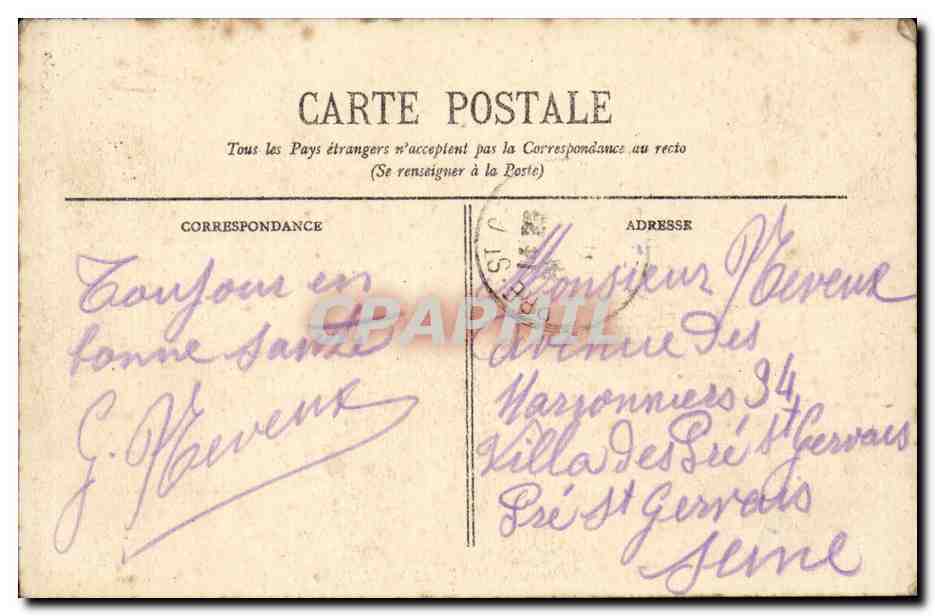 CARTE POSTALE
Tous les Pays étrangers n'acceptent pas la Correspondance au recto
(Se renseigner à la Poste)
CORRESPONDANCE
Toujour en
bonne santé
G. Neveux
ADRESSE
Monsieur Neveux
Avenue des
Marronniers 34
Villa des Pré St Gervais
Pré St Gervais
Seine
CPAPHIL